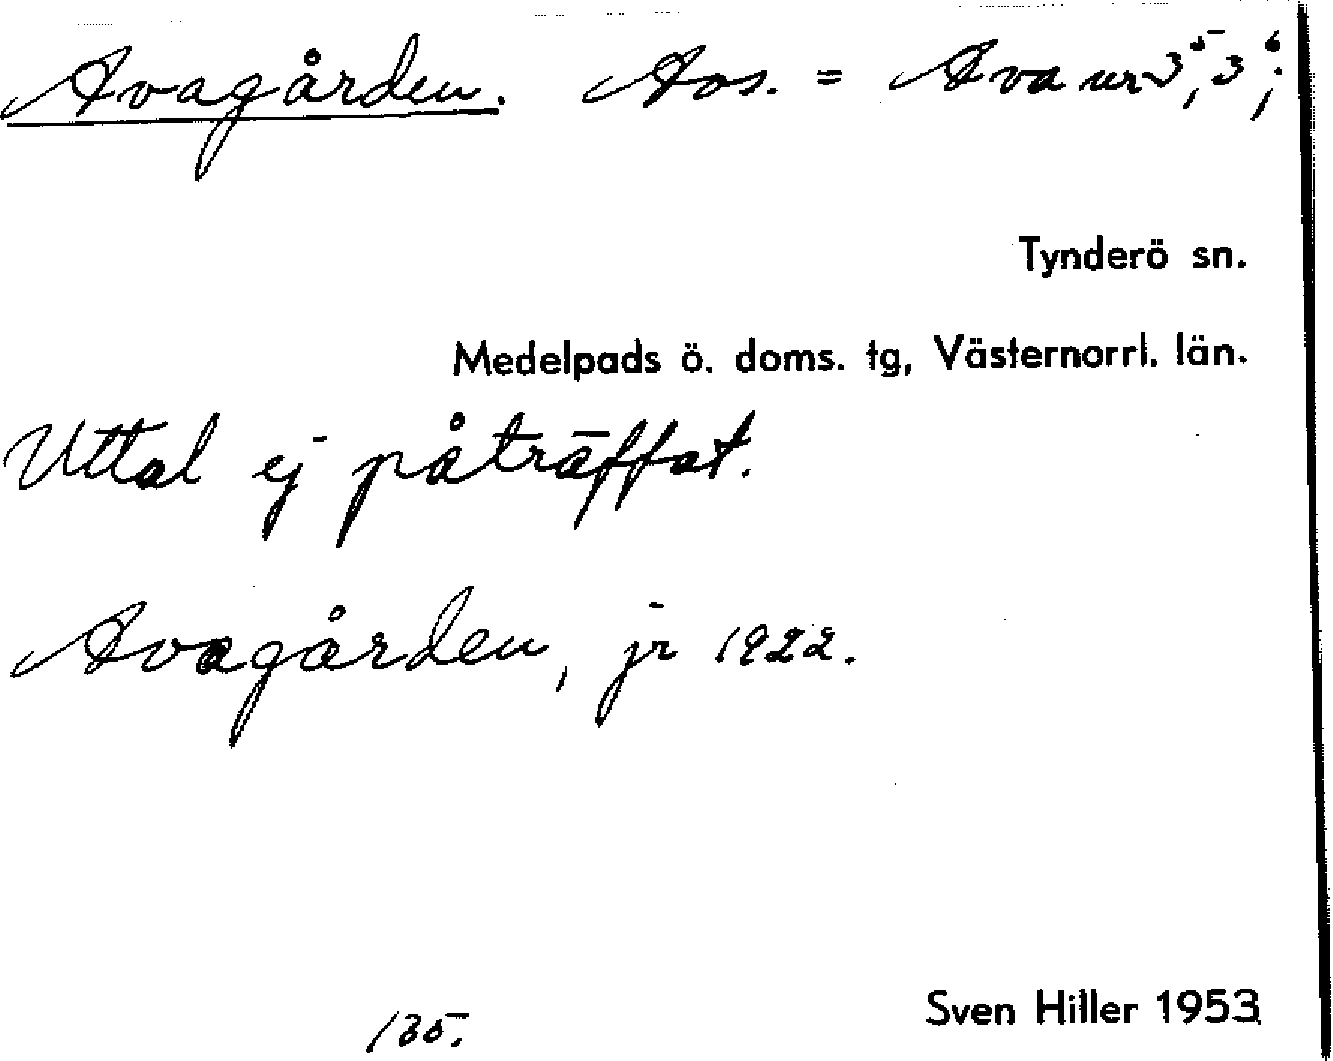 Avagården. Avs. = Ava nr 3⁵, 3⁶;
Tynderö sn.
Medelpads ö. doms. tg, Västernorrl. län.
Uttal ej påträffat.
Avagården, jr 1922.
135.
Sven Hiller 1953